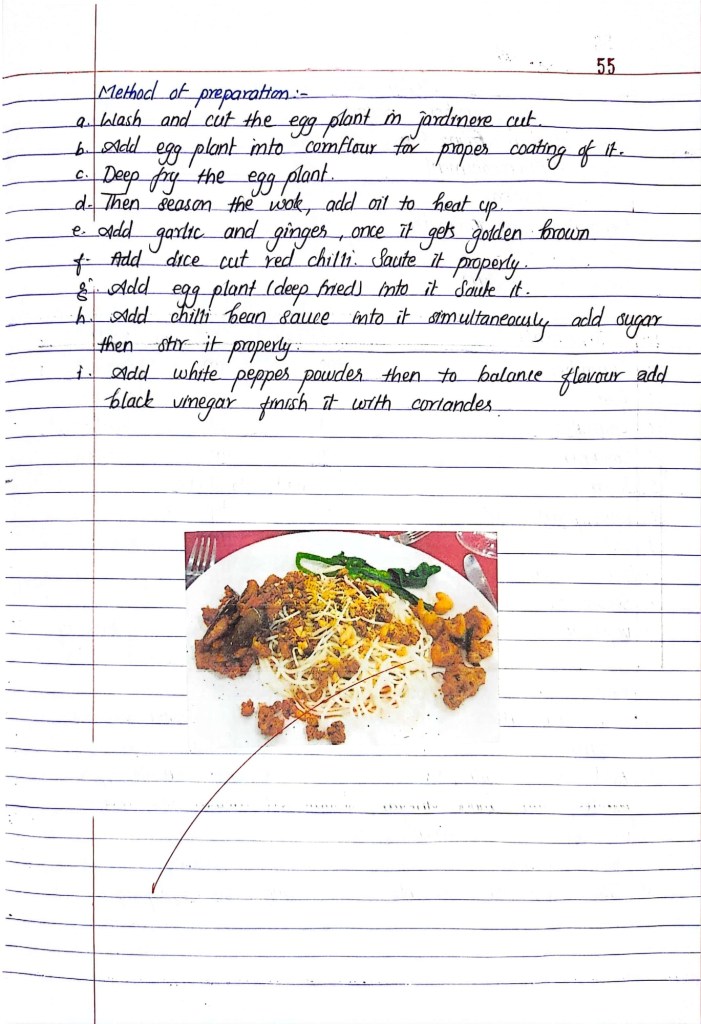 55
Method of preparation:-
a. Wash and cut the egg plant in jardinere cut.
b. Add egg plant into cornflour for proper coating of it.
c. Deep fry the egg plant.
d. Then season the wok, add oil to heat up.
e. Add garlic and ginger, once it gets golden brown
f. Add dice cut red chilli. Saute it properly.
g. Add egg plant (deep fried) into it Saute it.
h. Add chilli bean sauce into it simultaneously add sugar
then stir it properly.
i. Add white pepper powder then to balance flavour add
black vinegar finish it with corianders